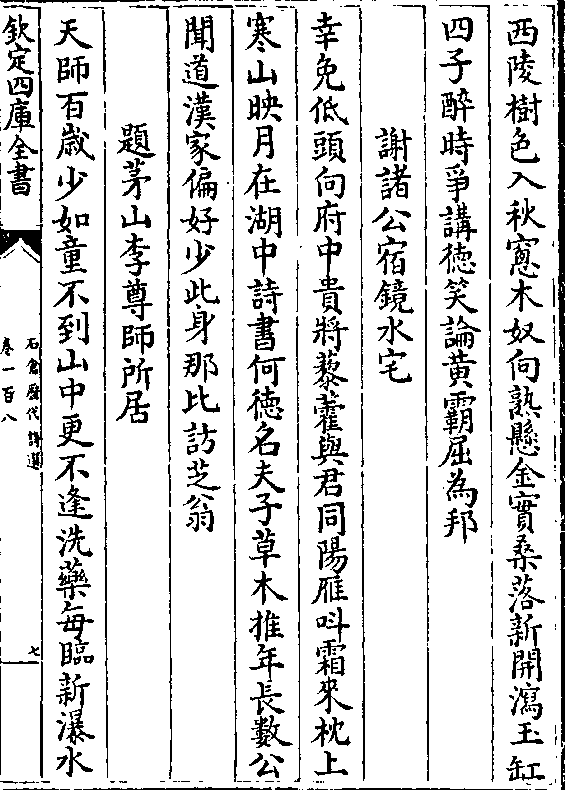 西陵樹色入秋窻木奴向熟懸金實桑落新開瀉玉缸
四子醉時爭講德笑論黄霸屈為邦
謝諸公宿鏡水宅
幸免低頭向府中貴將藜藿與君同陽雁呌霜來枕上
寒山映月在湖中詩書何德名夫子草木推年長數公
聞道漢家偏好少此身那比訪芝翁
題茅山李尊師所居
天師百歲少如童不到山中更不逢洗藥每臨新瀑水
欽定四庫全書
石倉歷代詩選
卷一百八
七